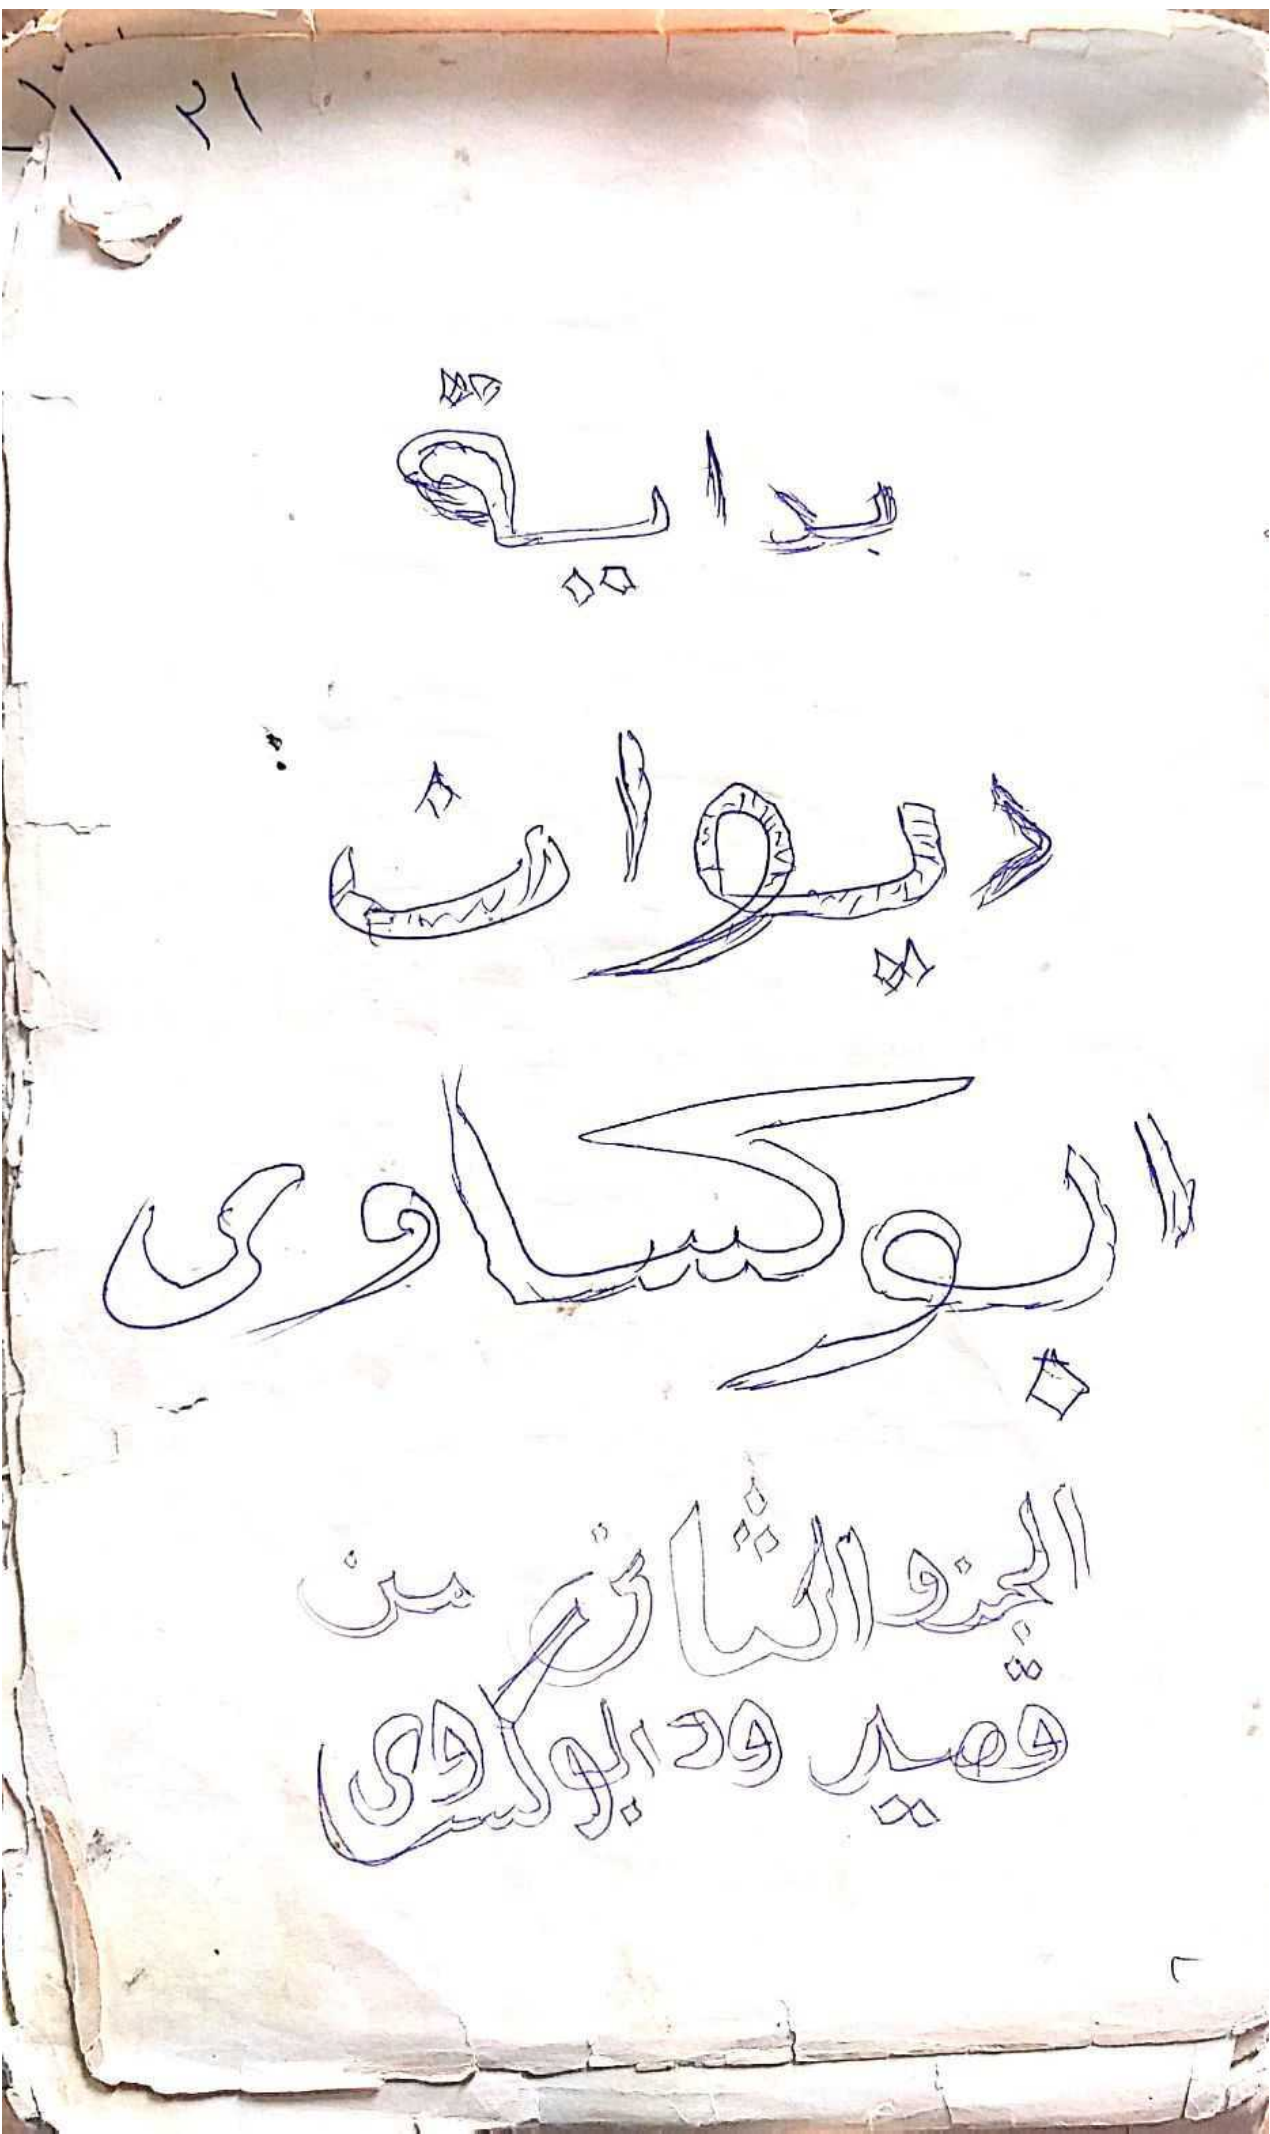 ٢١
بداية
ديوان
ابوكساوى
الجزو الثانى من
قصيد ود ابوكساوى
٢